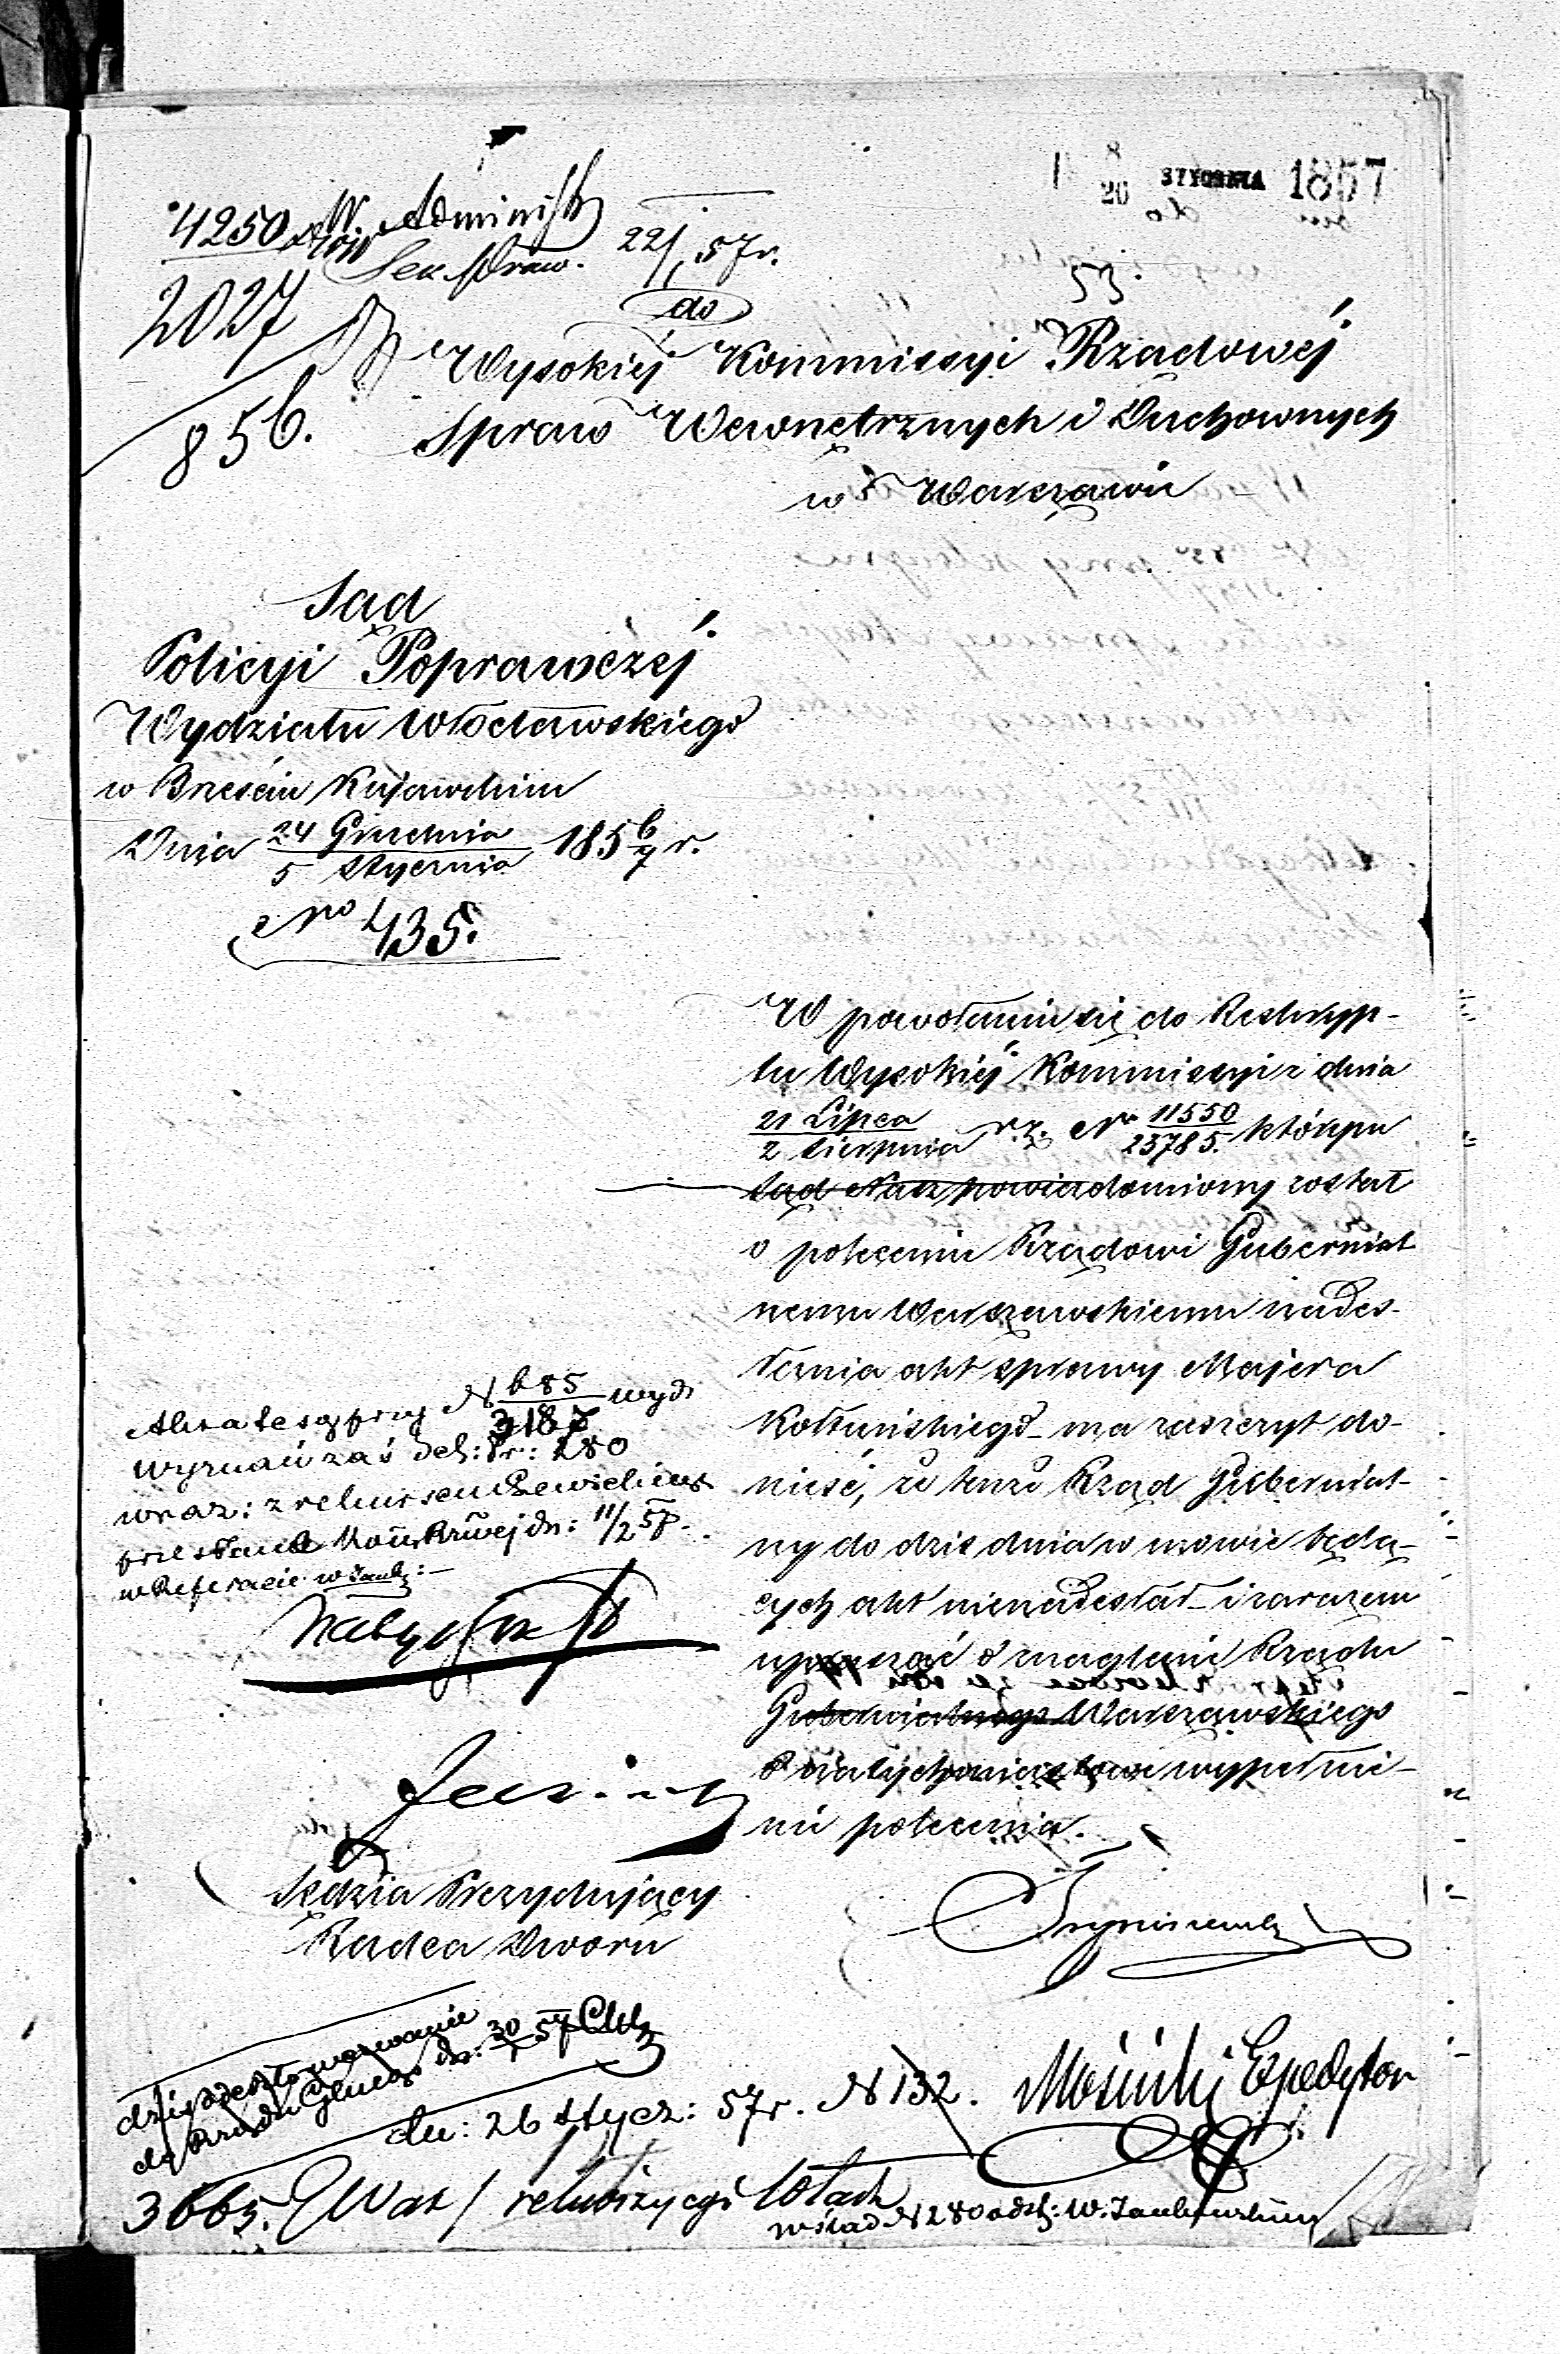 8
20 STYCZNIA 1857
4250 W. Administr
Sek. Praw. 22/1 57 r.
2027
53.
856.
do
Wysokiéj Kommissyi Rządowéj
Spraw Wewnętrznych i Duchownych
w Warszawie
Sąd
Policyi Poprawczéj
Wydziału Włocławskiego
w Brześciu Kujawskim
Dnia 24 Grudnia / 5 Stycznia 1856/7 r.
No 435.
W powołaniu się do Reskryp-
tu Wysokiéj Kommissyi z dnia
21 Lipca / 2 Sierpnia r. z. No 11550 / 23785. którym
Sąd Nasz powiadomiony został
o poleceniu Rządowi Gubernial
nemu Warszawskiemu nades-
łania akt sprawy Majera
Kołtuńskiego ma zaszczyt do-
nieść, że tenże Rząd Gubernial-
ny do dziś dnia w mowie będą-
cych akt nienadesłał i zarazem
upraszać o znaglenie Rządu
Gubernialnego Warszawskiego
o natychmiastowe wypełnie-
nie polecenia.
Akta te są przy N 685 / 3187 wyd:
wraz: z
przesłane dn: 11/2 57.
w Referacie
Sędzia Prezydujący
Radca Dworu
dziś
do Rządu Gub: dn: 30/1 57
dn: 26 stycz: 57 r. N 132. Expedytor
3665.
w ślad N 280 odst: W.